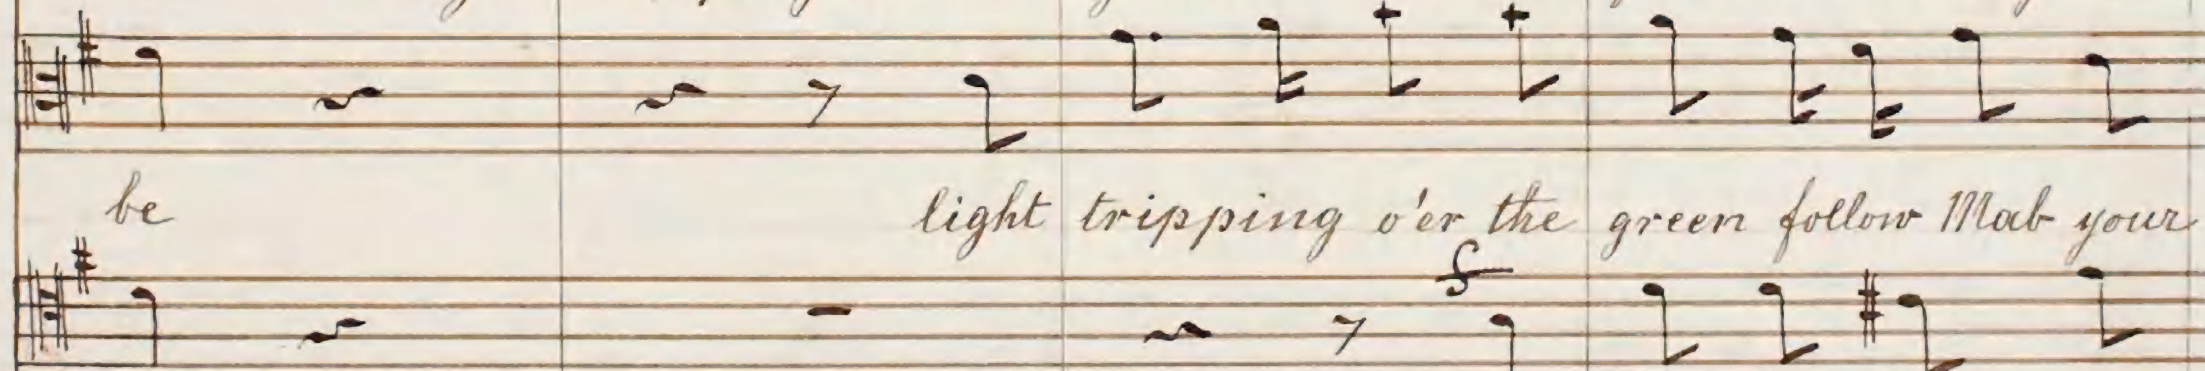 be light tripping o'er the green follow Mab your
f